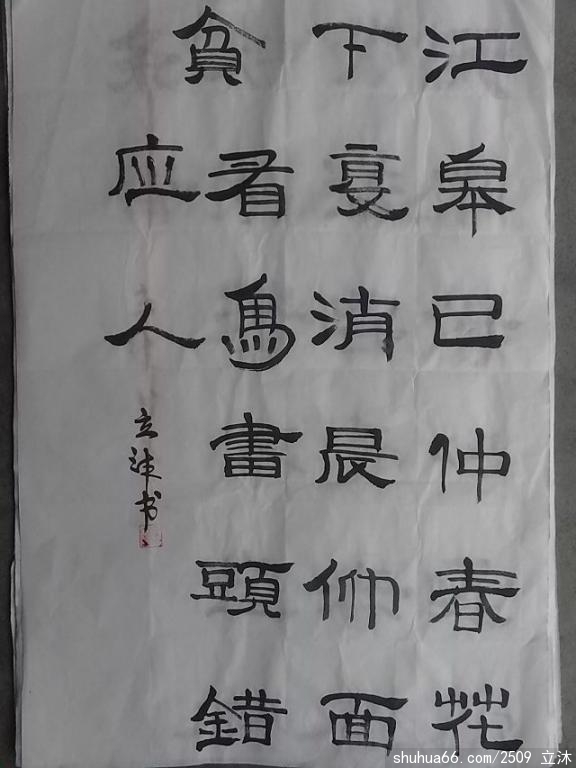 江皋已仲春花
下复消晨仰面
貪看鳥書頭錯
应人
立沐书
shuhua66.com/2509 立沐